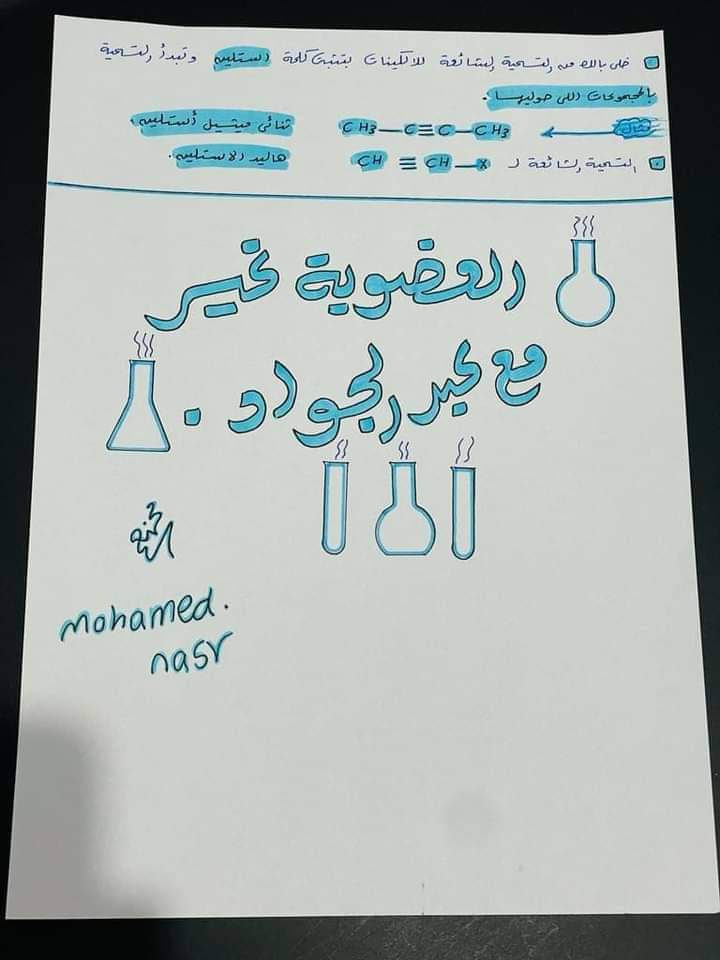 خلى بالك من التسمية الشائعة للالكينات بتثبت كلمة استلين وتبدأ التسمية
بالمجموعات اللى حوليها.
مثال CH3—C≡C—CH3 ثنائى ميثيل أستلين.
التسمية الشائعة لـ CH≡CH—X هاليد الاستلين.
العضوية غير
مع عبد الجواد.
mohamed.
nasr